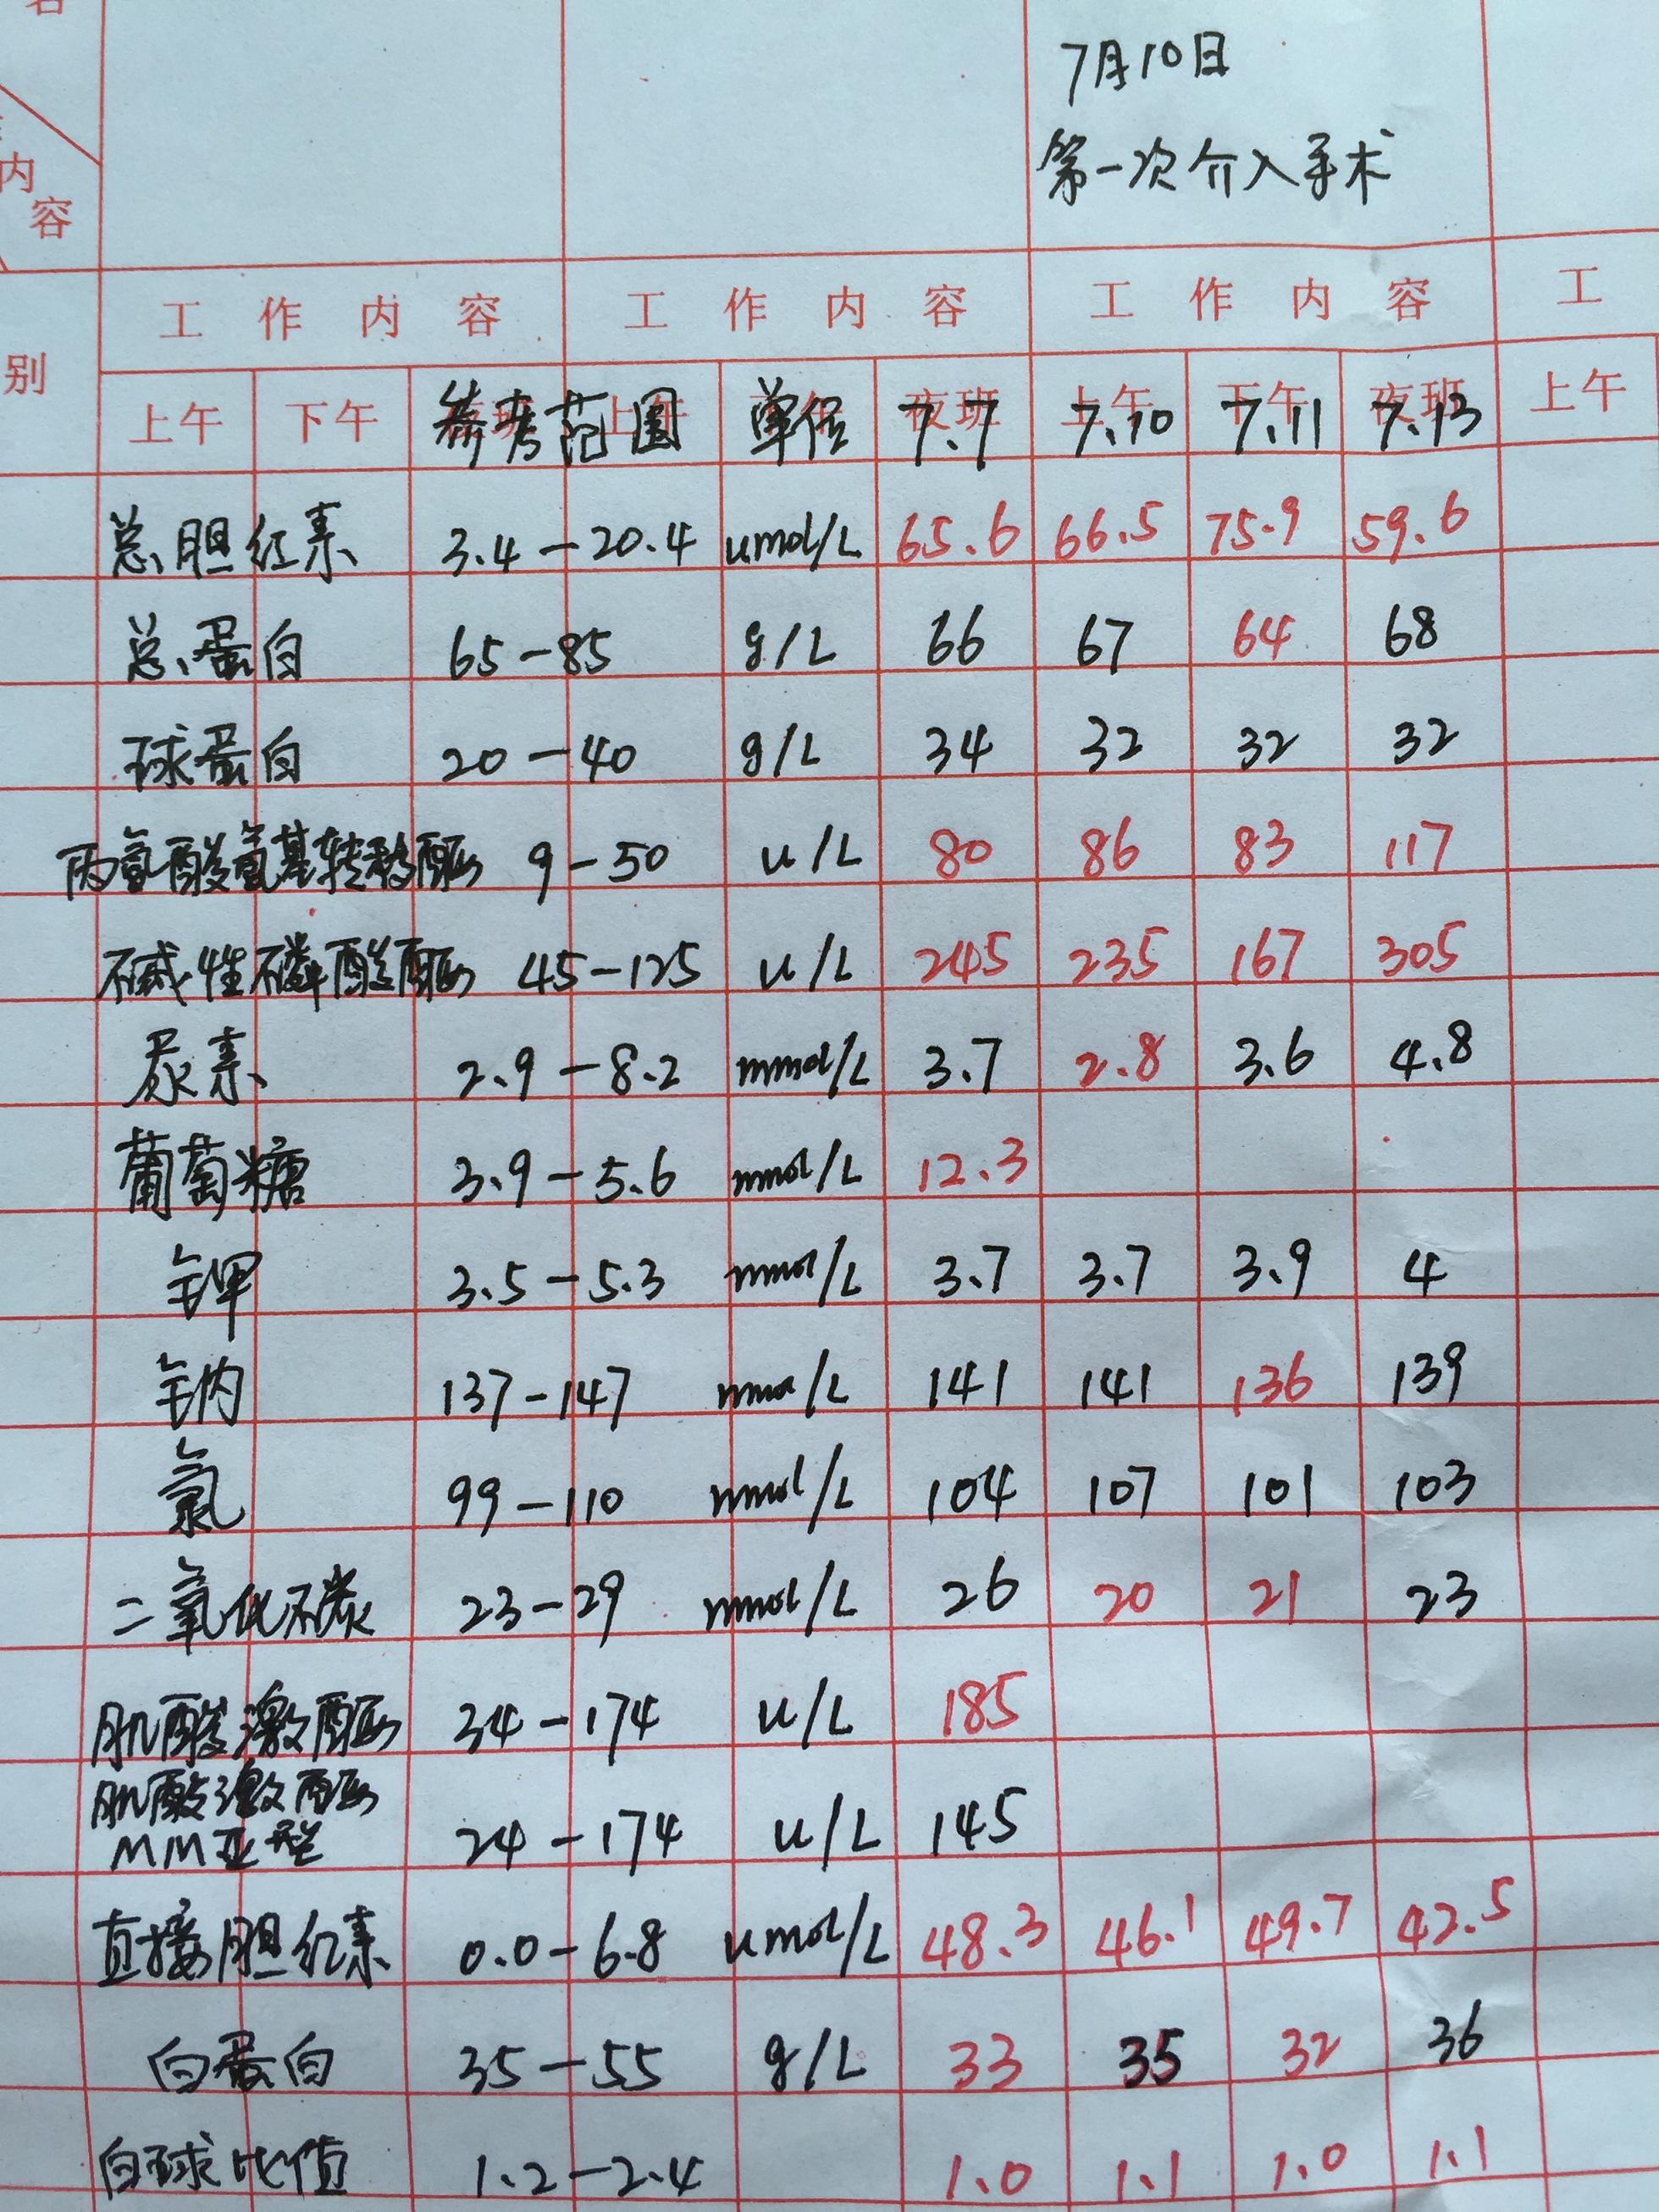 名
7月10日
第一次介入手术
内
容
工作内容 工作内容 工作内容 工
别
上午 下午 参考范围 单位 7.7 7.10 7.11 7.13 上午
总胆红素 3.4-20.4 umol/L 65.6 66.5 75.9 59.6
总蛋白 65-85 g/L 66 67 64 68
球蛋白 20-40 g/L 34 32 32 32
丙氨酸氨基转移酶 9-50 u/L 80 86 83 117
碱性磷酸酶 45-125 u/L 245 235 167 305
尿素 2.9-8.2 mmol/L 3.7 2.8 3.6 4.8
葡萄糖 3.9-5.6 mmol/L 12.3
钾 3.5-5.3 mmol/L 3.7 3.7 3.9 4
钠 137-147 mmol/L 141 141 136 139
氯 99-110 mmol/L 104 107 101 103
二氧化碳 23-29 mmol/L 26 20 21 23
肌酸激酶 34-174 u/L 185
肌酸激酶
MM亚型 24-174 u/L 145
直接胆红素 0.0-6.8 umol/L 48.3 46.1 49.7 42.5
白蛋白 35-55 g/L 33 35 32 36
白球比值 1.2-2.4 1.0 1.1 1.0 1.1